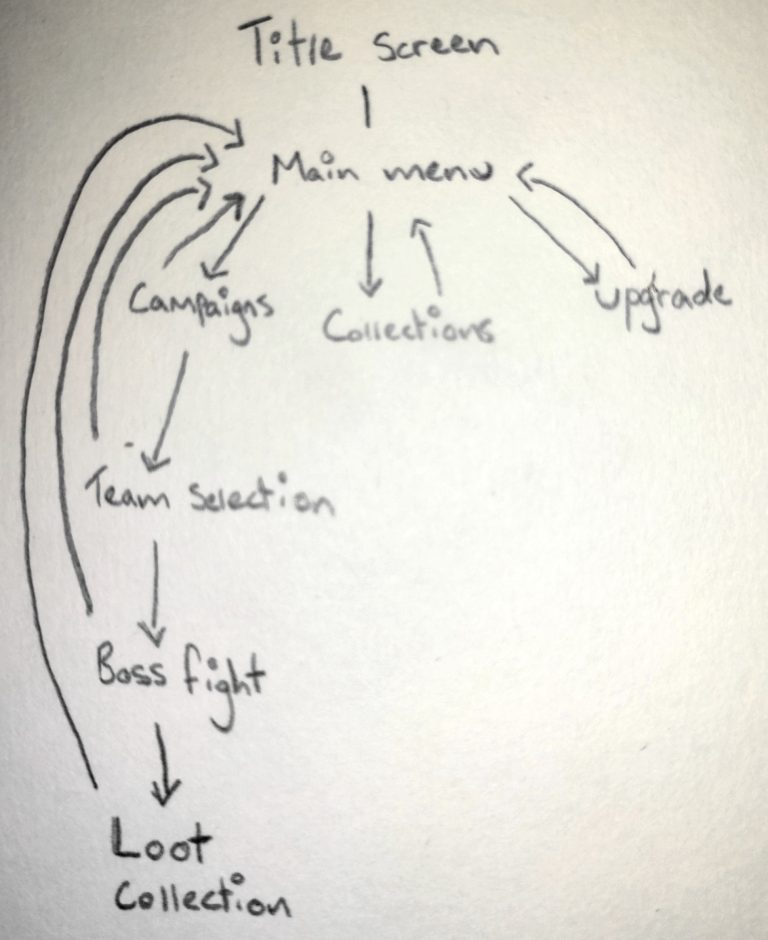 Title screen
Main menu
Campaigns
Collections
upgrade
Team selection
Boss fight
Loot
Collection